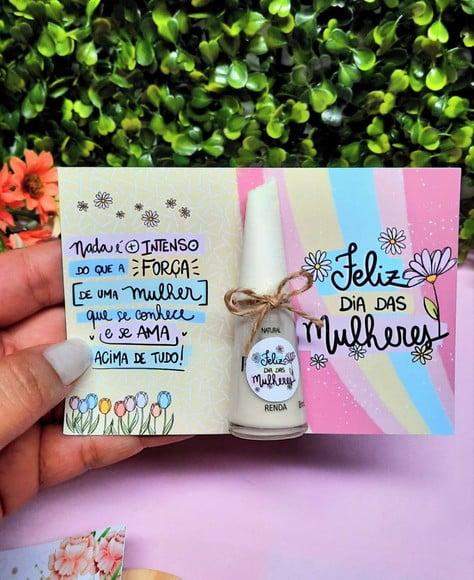 Nada é + INTENSO
DO QUE A FORÇA
DE UMA mulher
que se conhece
e se AMA
ACIMA DE TUDO!
NATURAL
Feliz
DIA DAS
Mulheres
RENDA
Feliz
DIA DAS
Mulheres